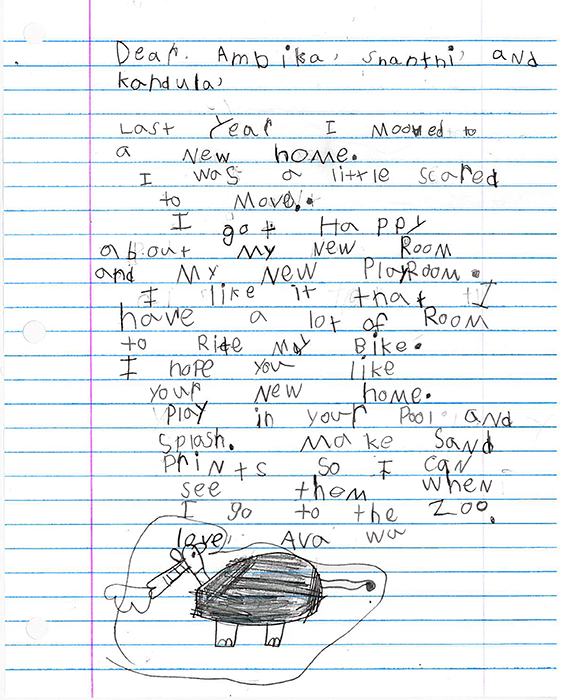 Dear. Ambika, Shanthi, and
Kandula,
Last Year I Mooved to
a New home.
I was a little scared
to Move.
I got Happy
about MY New Room
and MY New PlayRoom.
I like it that I
have a lot of Room
to Ride My Bike.
I hope you like
your New home.
Play in your Pool and
Splash. Make Sand
Prints so I can
see them When
I go to the Zoo.
love, Ava Wa